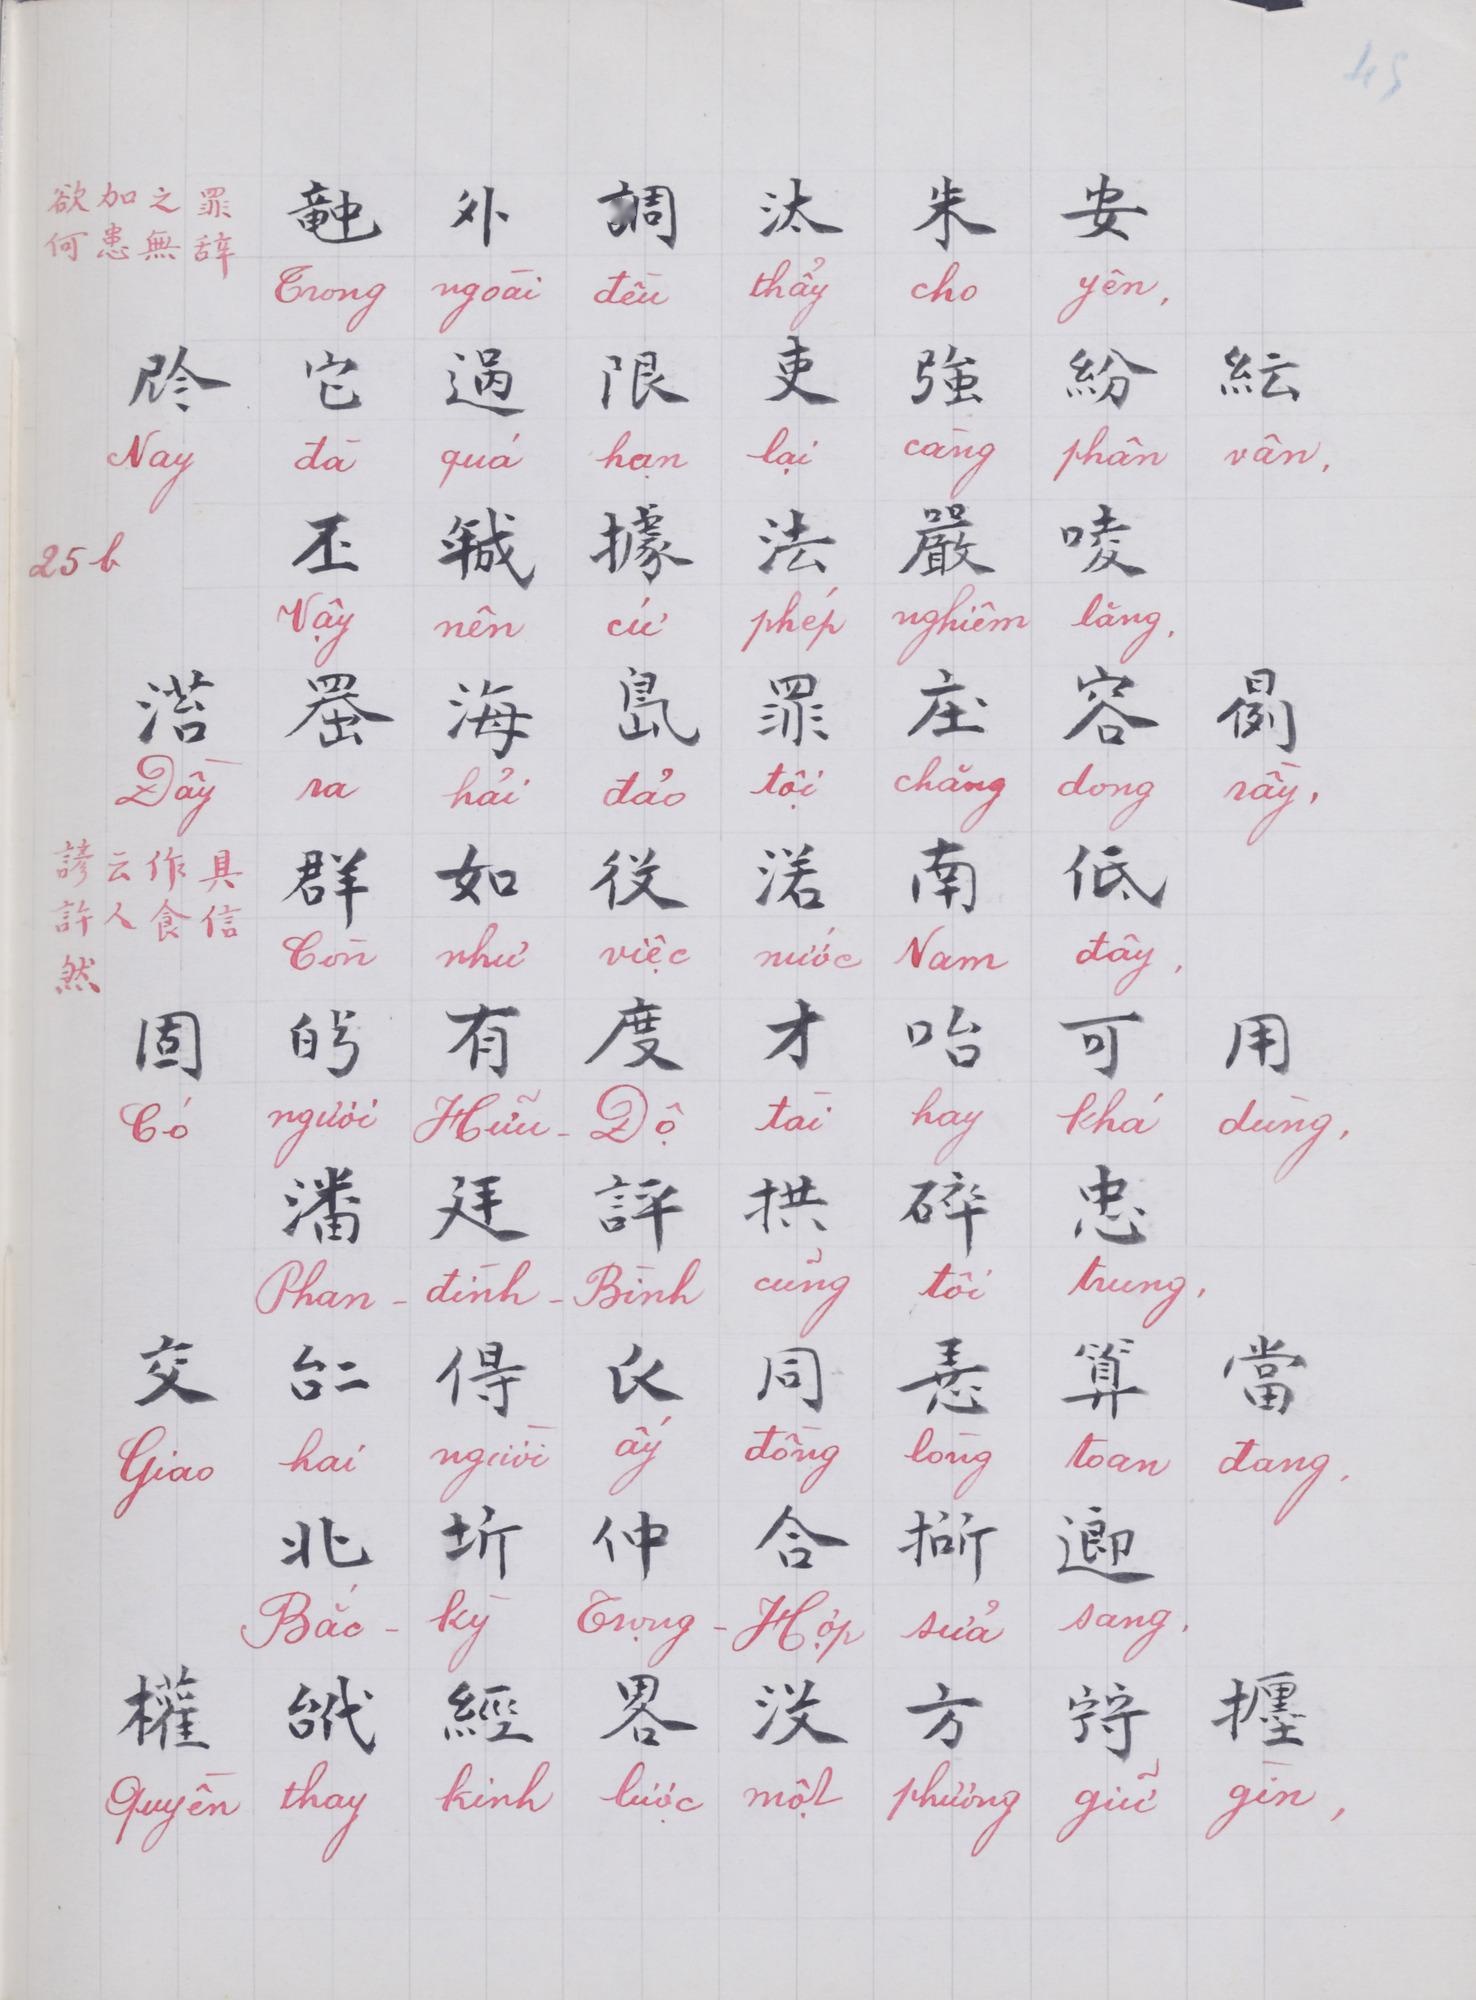 45
欲加之罪
何患無辞
外 調 汰 朱 安
Trong ngoài đều thảy cho yên,
它 過 限 吏 強 紛 紜
Nay đã quá hạn lại càng phân vân,
25b
丕 據 法 嚴 唛
Vậy nên cứ phép nghiêm lăng,
海 島 罪 庄 容
Đầy ra hải đảo tội chăng dong rầy,
諺云作具
許人食信
然
群 如 役 渃 南 低
Còn như việc nước Nam đây,
固 有 度 才 咍 可 用
Có người Hữu-Độ tài hay khả dùng,
潘 廷 評 拱 碎 忠
Phan-đình-Bình cũng tôi trung,
交 得 同 算 當
Giao hai người ấy đồng lòng toan đang,
北 圻 仲 合
Bắc-kỳ Trọng-Hợp sửa sang,
權 經 畧 没 方
Quyền thay kinh lược một phương giữ gìn,